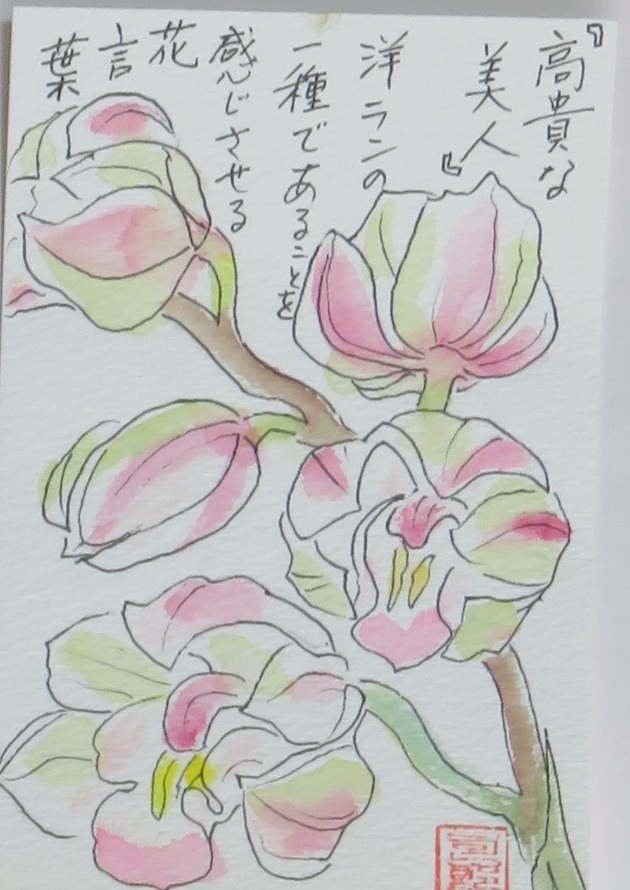 『高貴な
美人』
洋ランの
一種であることを
感じさせる
花
言
葉